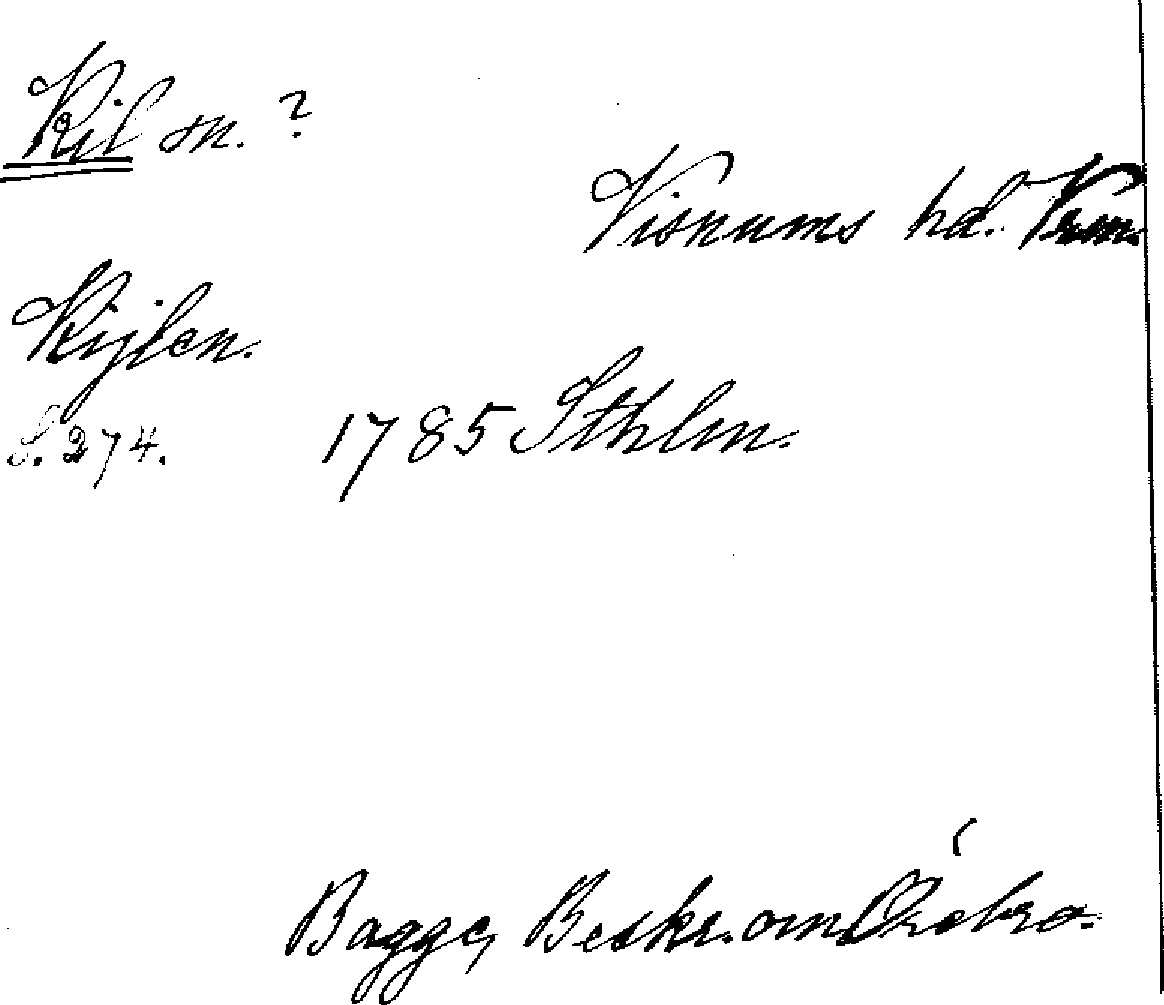 Kil sn. ?
Visnums hd. Vrm.
Kijlen.
S. 274. 1785 Sthlm.
Bagge, Beskr. om Örebro.